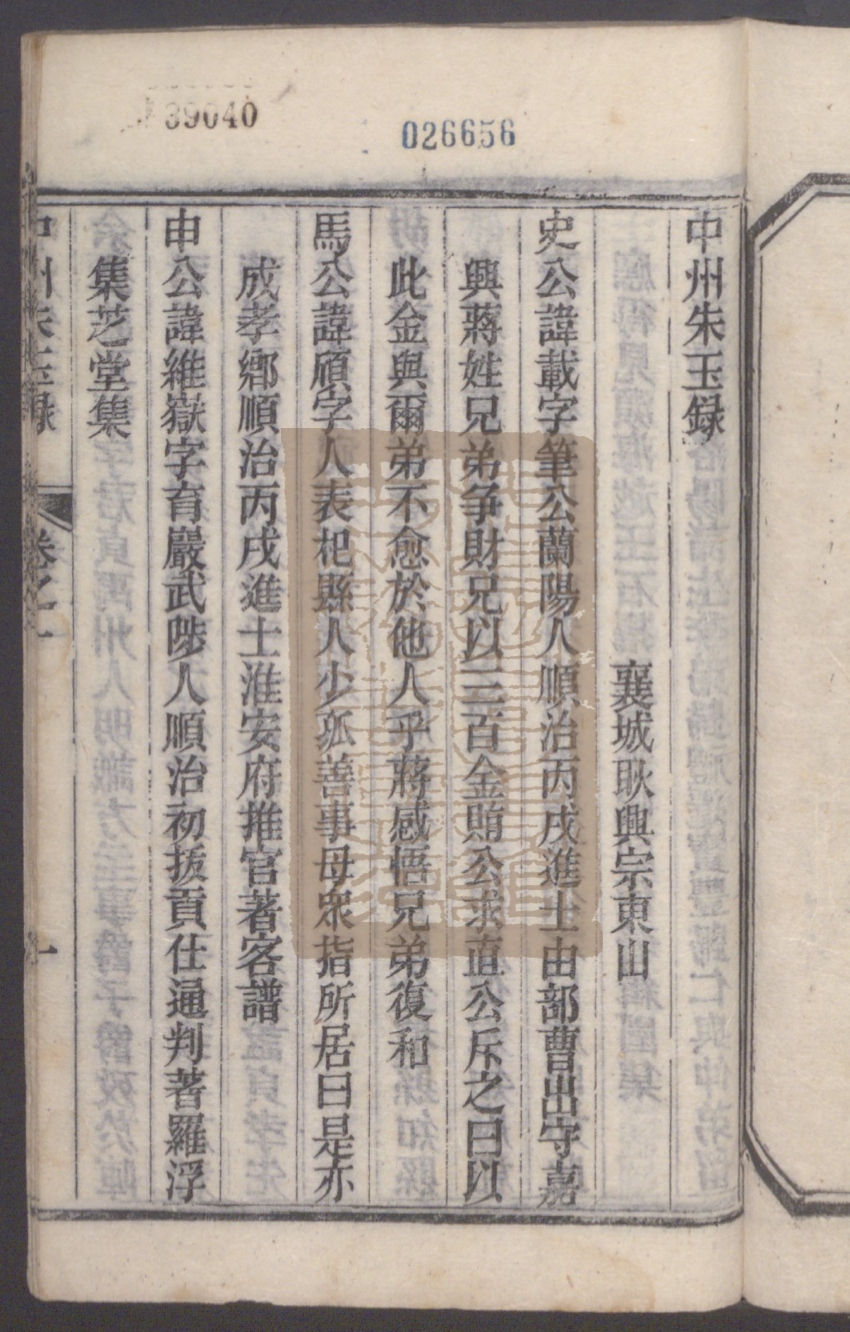 39040
026656
中州朱玉録
襄城耿興宗東山
史公諱載字筆公蘭陽人順治丙戌進士由部曹出守嘉
興蔣姓兄弟爭財兄以三百金賄公求直公斥之曰以
此金與爾弟不愈於他人乎蔣感悟兄弟復和
馬公諱頎字人表杞縣人少孤善事母衆指所居曰是亦
成孝鄉順治丙戌進士淮安府推官著客譜
申公諱維嶽字育巖武陟人順治初拔貢仕通判著羅浮
集芝堂集
中州朱玉録 卷之一 一